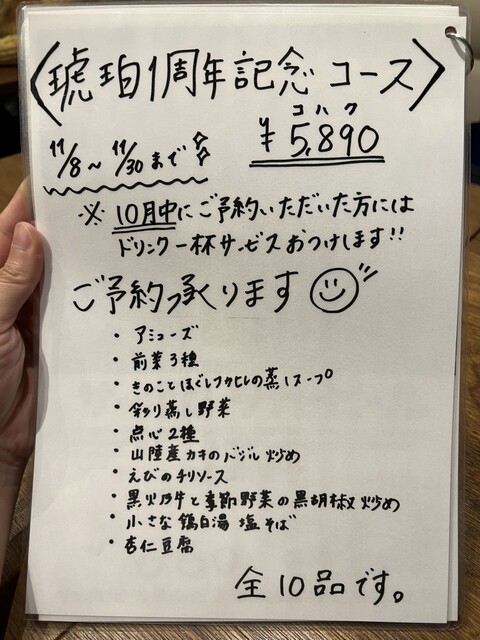 〈琥珀1周年記念コース〉
コハク
11/8〜11/30まで ¥5,890
※10月中にご予約いただいた方には
ドリンク一杯サービスおつけします!!
ご予約承ります
・アミューズ
・前菜3種
・きのことほぐしフカヒレの蒸しスープ
・彩り蒸し野菜
・点心2種
・山陸産カキのバジル炒め
・えびのチリソース
・黒火乃牛と季節野菜の黒胡椒炒め
・小さな鶏白湯塩そば
・杏仁豆腐
全10品です。